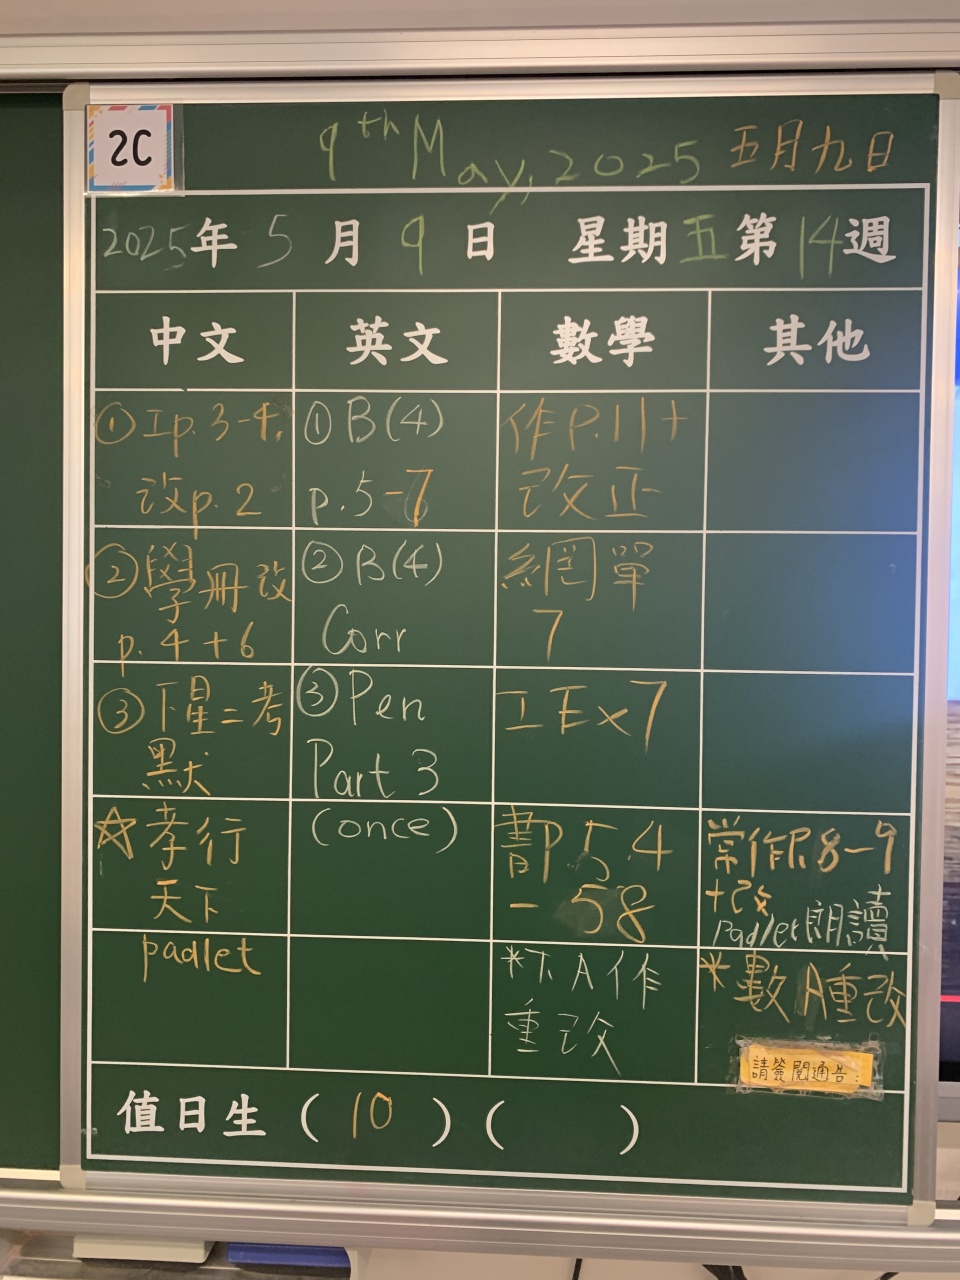 2C
9th May, 2025 五月九日
2025年 5 月 9 日 星期五第14週
中文 英文 數學 其他
①工p.3-4,
改p.2
①B(4)
p.5-7
作P.11+
改正
②學冊改
p.4+6
②B(4)
Corr
網單
7
③下星二考
默
③Pen
Part 3
(once)
工Ex7
☆孝行
天下
padlet
書P.54
-58
常作P.8-9
+改
Padlet朗讀
*下A作
重改
*數A重改
請簽閱通告:
值日生(10)( )